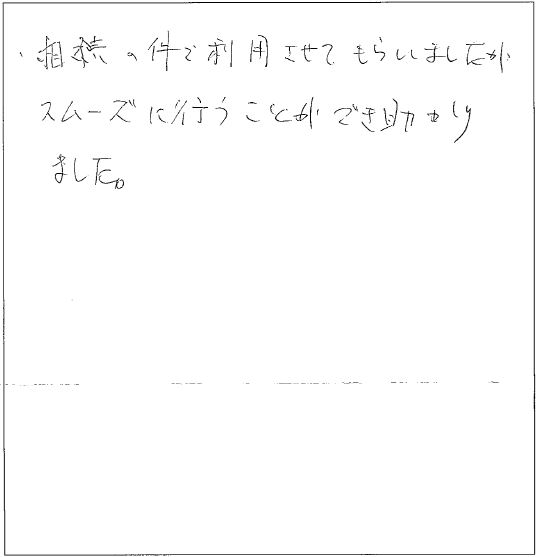 ・相続の件で利用させてもらいましたが
スムーズに行うことができ助かり
ました。